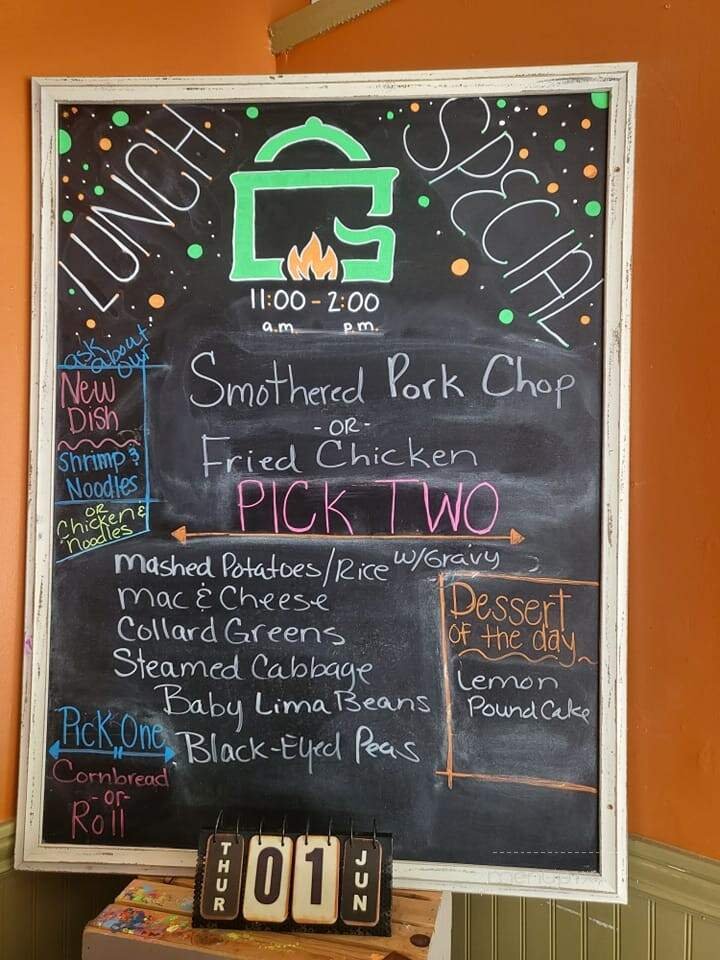 LUNCH SPECIAL
11:00 - 2:00
a.m. p.m.
ask about our
New Dish
Shrimp & Noodles
OR
Chicken & Noodles
Smothered Pork Chop
- OR -
Fried Chicken
PICK TWO
Mashed Potatoes/Rice w/Gravy
Mac & Cheese
Collard Greens
Steamed Cabbage
Baby Lima Beans
Black-Eyed Peas
Dessert
OF the day
Lemon
Pound Cake
Pick One
Cornbread
- or -
Roll
THUR 01 JUN